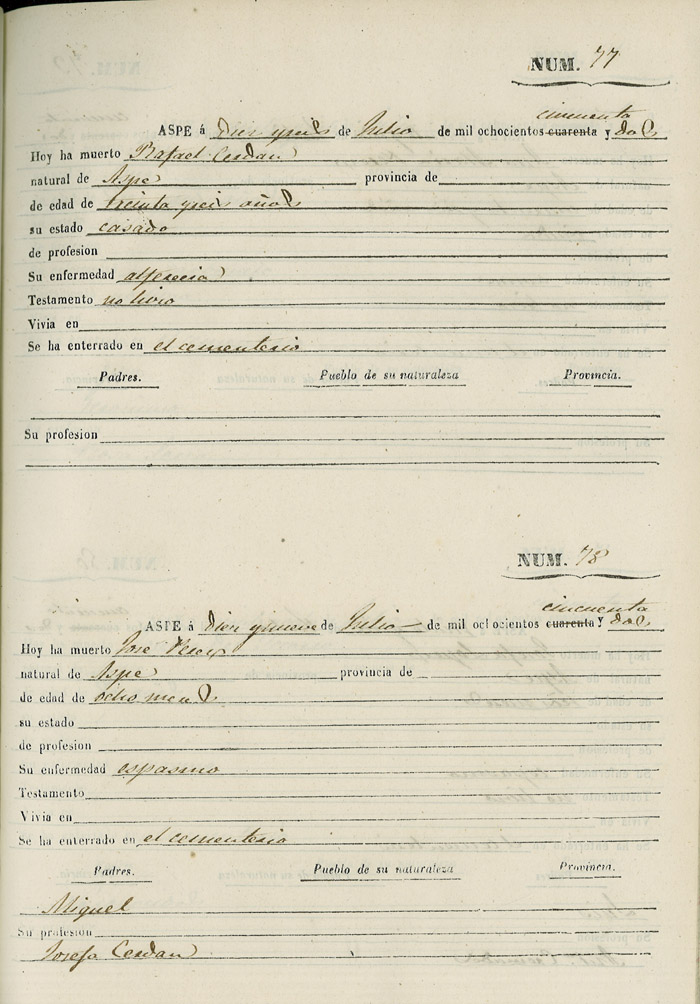 NUM. 77
cincuenta
ASPE á Diez y seis de Julio de mil ochocientos cuarenta y dos
Hoy ha muerto Rafael Cerdan
natural de Aspe provincia de
de edad de treinta y seis años
su estado casado
de profesion
Su enfermedad alferecia
Testamento no hizo
Vivia en
Se ha enterrado en el cementerio
Padres. Pueblo de su naturaleza Provincia.
Su profesion
NUM. 78
cincuenta
ASPE á Diez y nueve de Julio de mil ochocientos cuarenta y dos
Hoy ha muerto Jose Perez
natural de Aspe provincia de
de edad de ocho meses
su estado
de profesion
Su enfermedad espasmo
Testamento
Vivia en
Se ha enterrado en el cementerio
Padres. Pueblo de su naturaleza Provincia.
Miguel
Su profesion
Josefa Cerdan